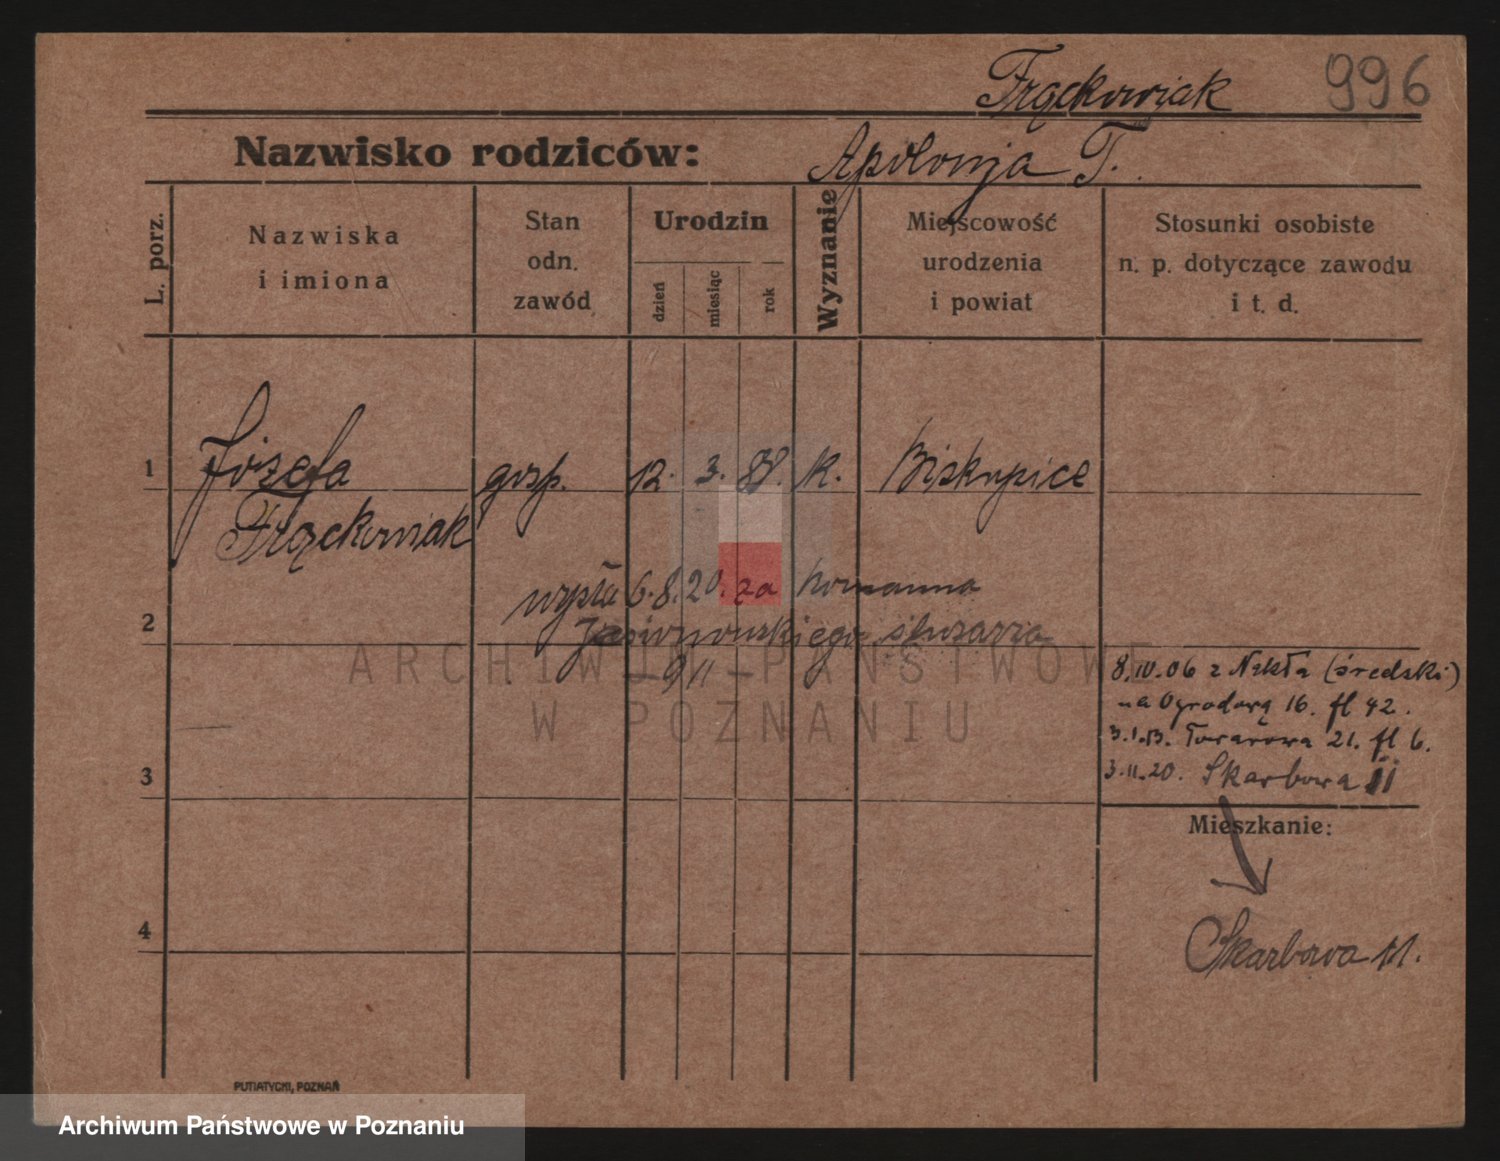 Frąckowiak 996
Nazwisko rodziców: Apolonja T.
L. porz.
Nazwiska
i imiona
Stan
odn.
zawód
Urodzin
dzień
miesiąc
rok
Wyznanie
Miejscowość
urodzenia
i powiat
Stosunki osobiste
n. p. dotyczące zawodu
i t. d.
1 Józefa gosp. 12. 3. 88. K. Biskupice
Frąckowiak
wyszła 6.8.20. za
2 ślusarza
8.IV.06 z Nekla (średzki)
na Ogrodową 16. fl 42.
3.1.13. Towarowa 21. fl 6.
3.11.20. Skarbowa 11
3
Mieszkanie:
4 Skarbowa 11.
PUTIATYCKI, POZNAŃ
ARCHIWUM PAŃSTWOWE
W POZNANIU
Archiwum Państwowe w Poznaniu